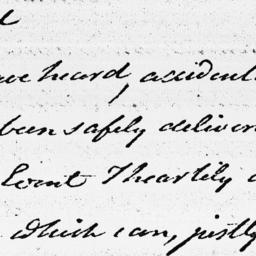 ve heard, accident
been safely deliver
event I heartily
which can, justly